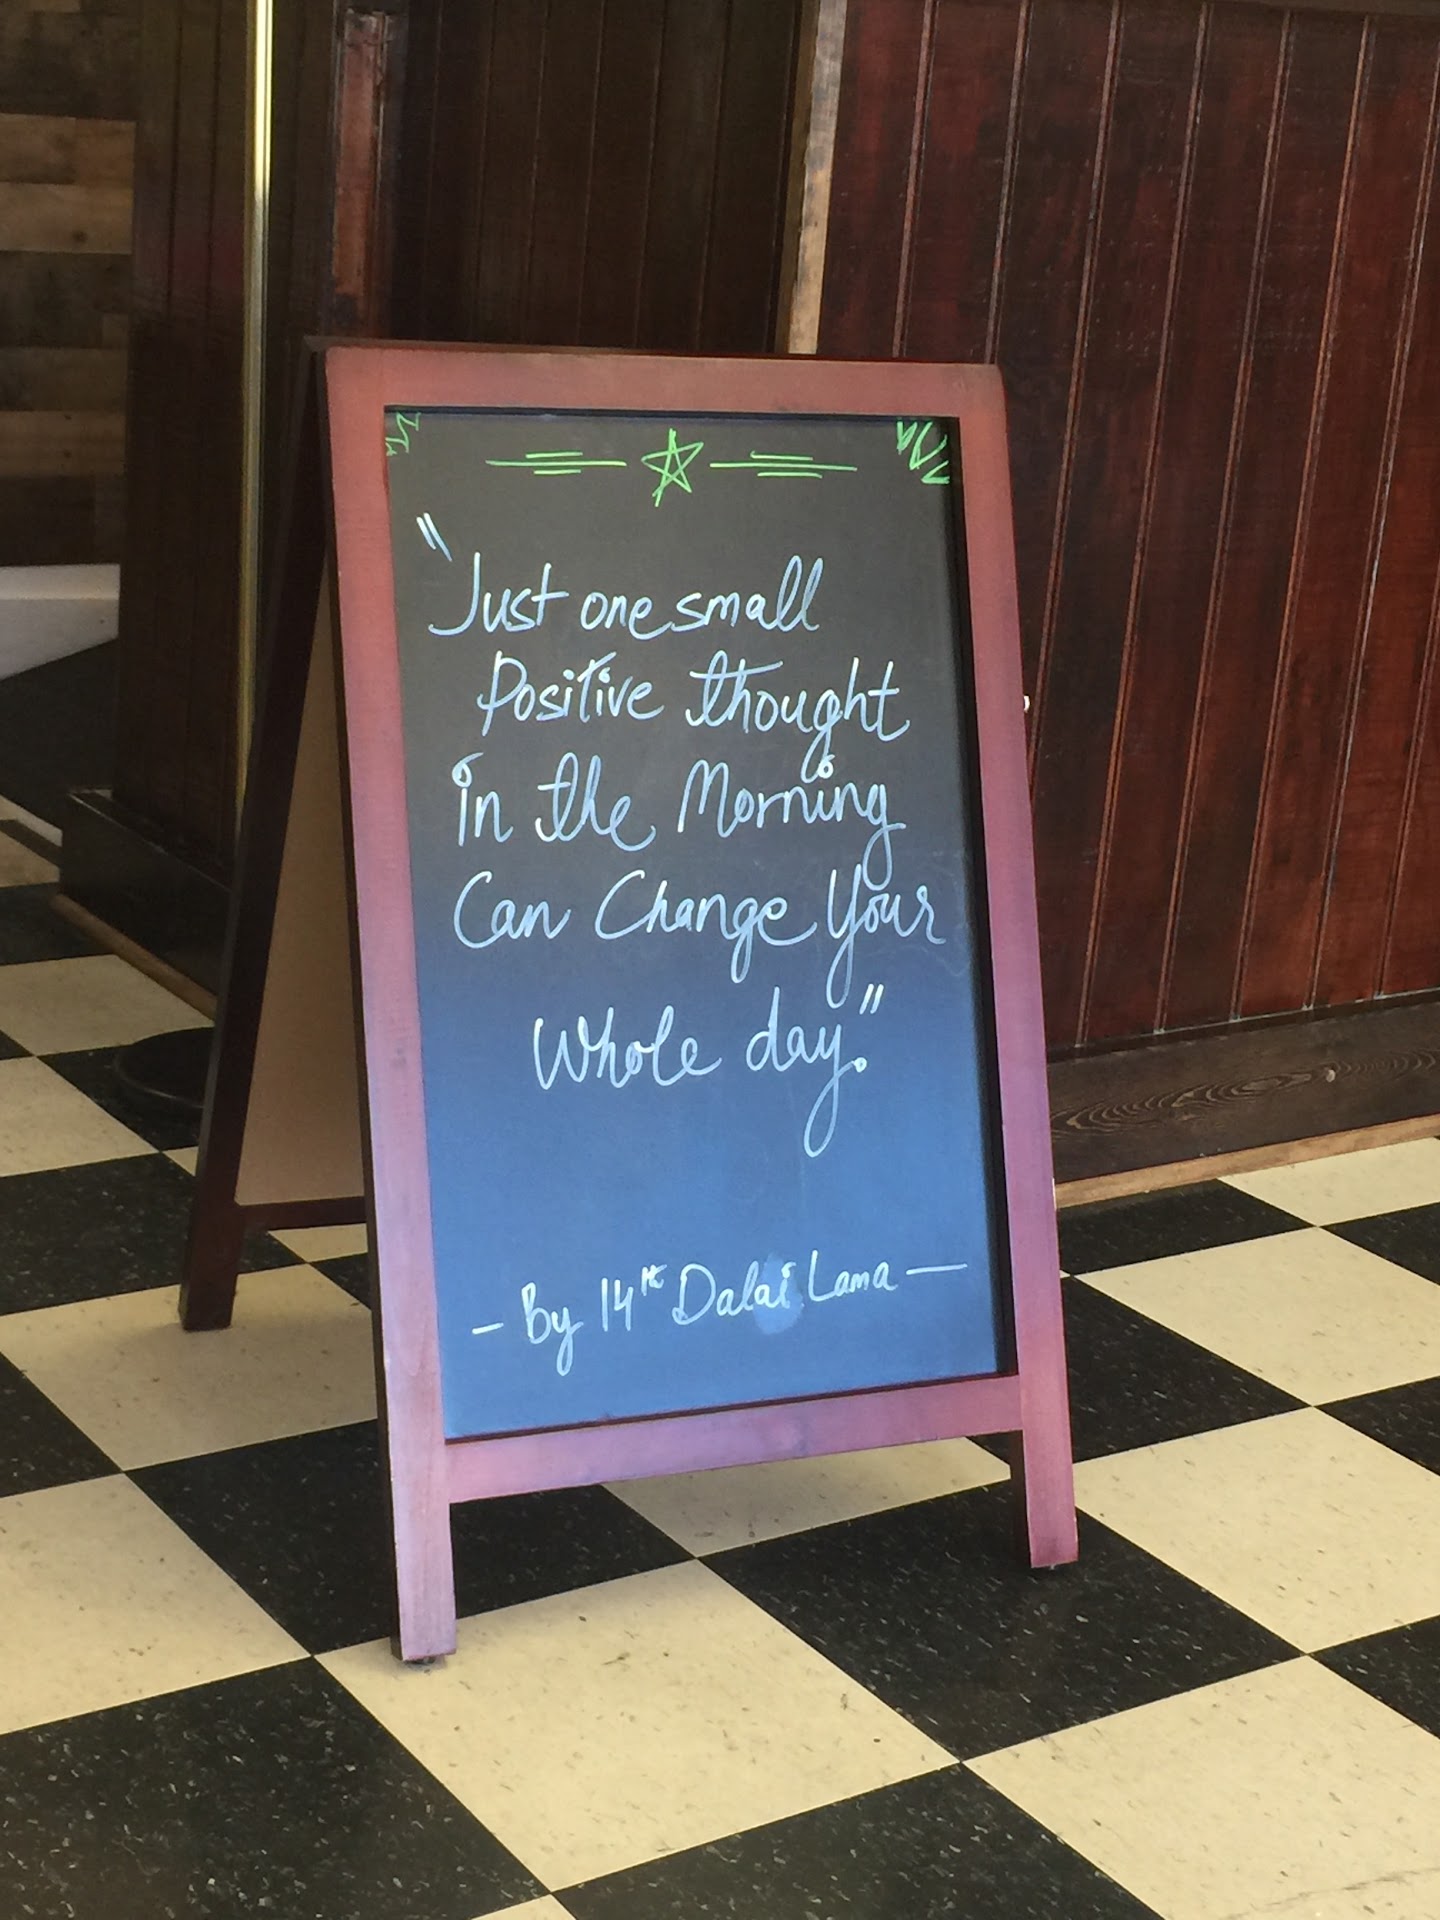 "Just one small
Positive thought
in the Morning
Can Change Your
Whole day."
- By 14th Dalai Lama -